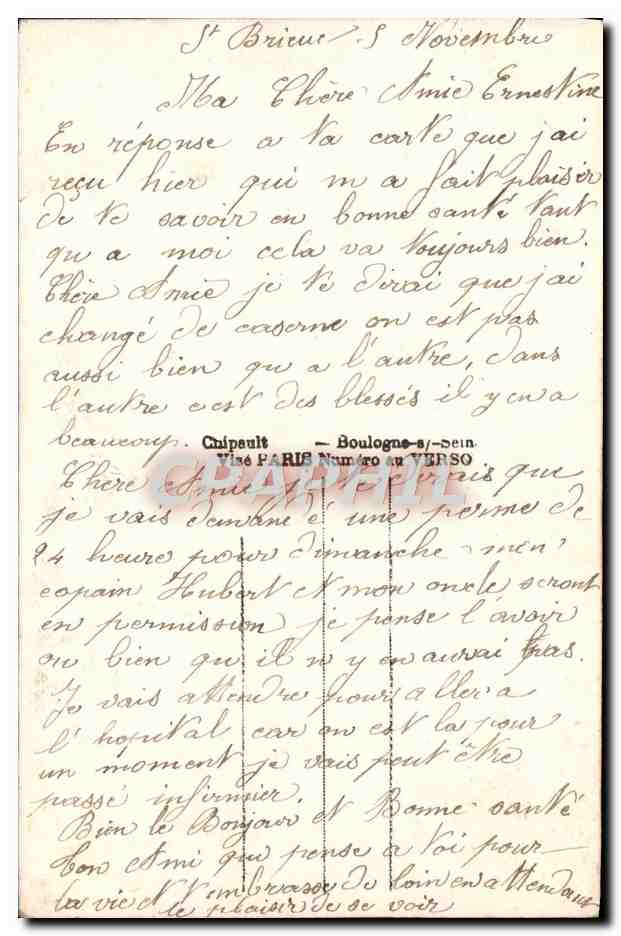 St Brieuc, 5 Novembre
Ma Chère Amie Ernestine
En réponse a ta carte que j'ai
reçu hier qui m a fait plaisir
de te savoir en bonne santé tant
qu a moi cela va toujours bien.
Chère Amie je te dirai que j'ai
changé de caserne on est pas
aussi bien qu a l'autre, dans
l'autre c est des blessés il y en a
beaucoup.
Chipault — Boulogne-s/-Sein
Visé PARIS Numéro au VERSO
CPAPHIL
Chère Amie je te dirais que
je vais demandé une perme de
24 heure pour dimanche mon
copain Hubert et mon oncle seront
en permission je pense l'avoir
ou bien qu il n y en aurai pas.
Je vais attendre pour aller a
l'hopital car on est la pour
un moment je vais peut être
passé infirmier.
Bien le Bonjour et Bonne santé
Ton Ami qui pense a toi pour
la vie et t'embrasse de loin en attendant
le plaisir de se voir